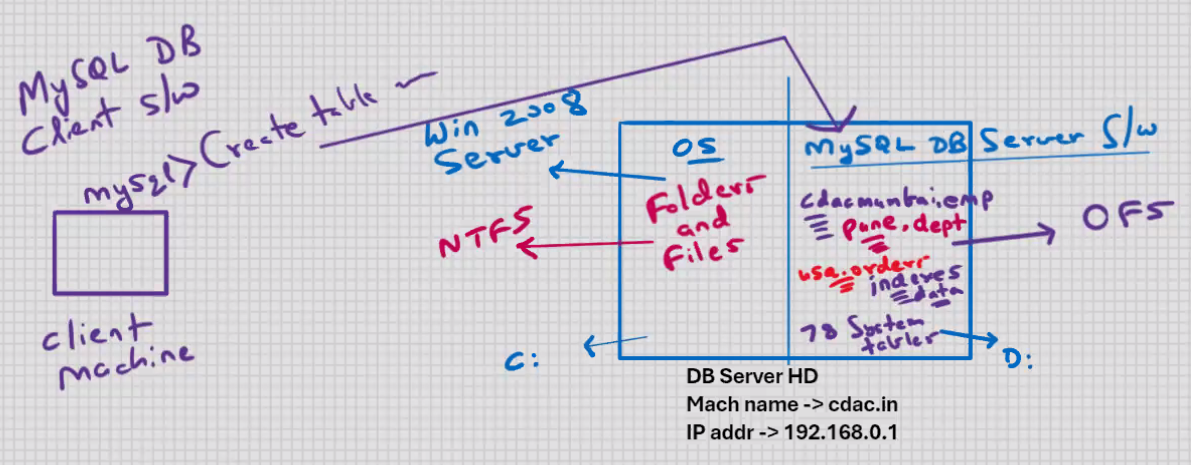 MySQL DB
Client S/w
mysql> Create table
client
machine
Win 2008
Server
NTFS
OS
Folders
and
Files
C:
MySQL DB Server S/w
cdacmumbai.emp
pune.dept
usa.orders
indexes
data
78 System
tables
OFS
D:
DB Server HD
Mach name -> cdac.in
IP addr -> 192.168.0.1